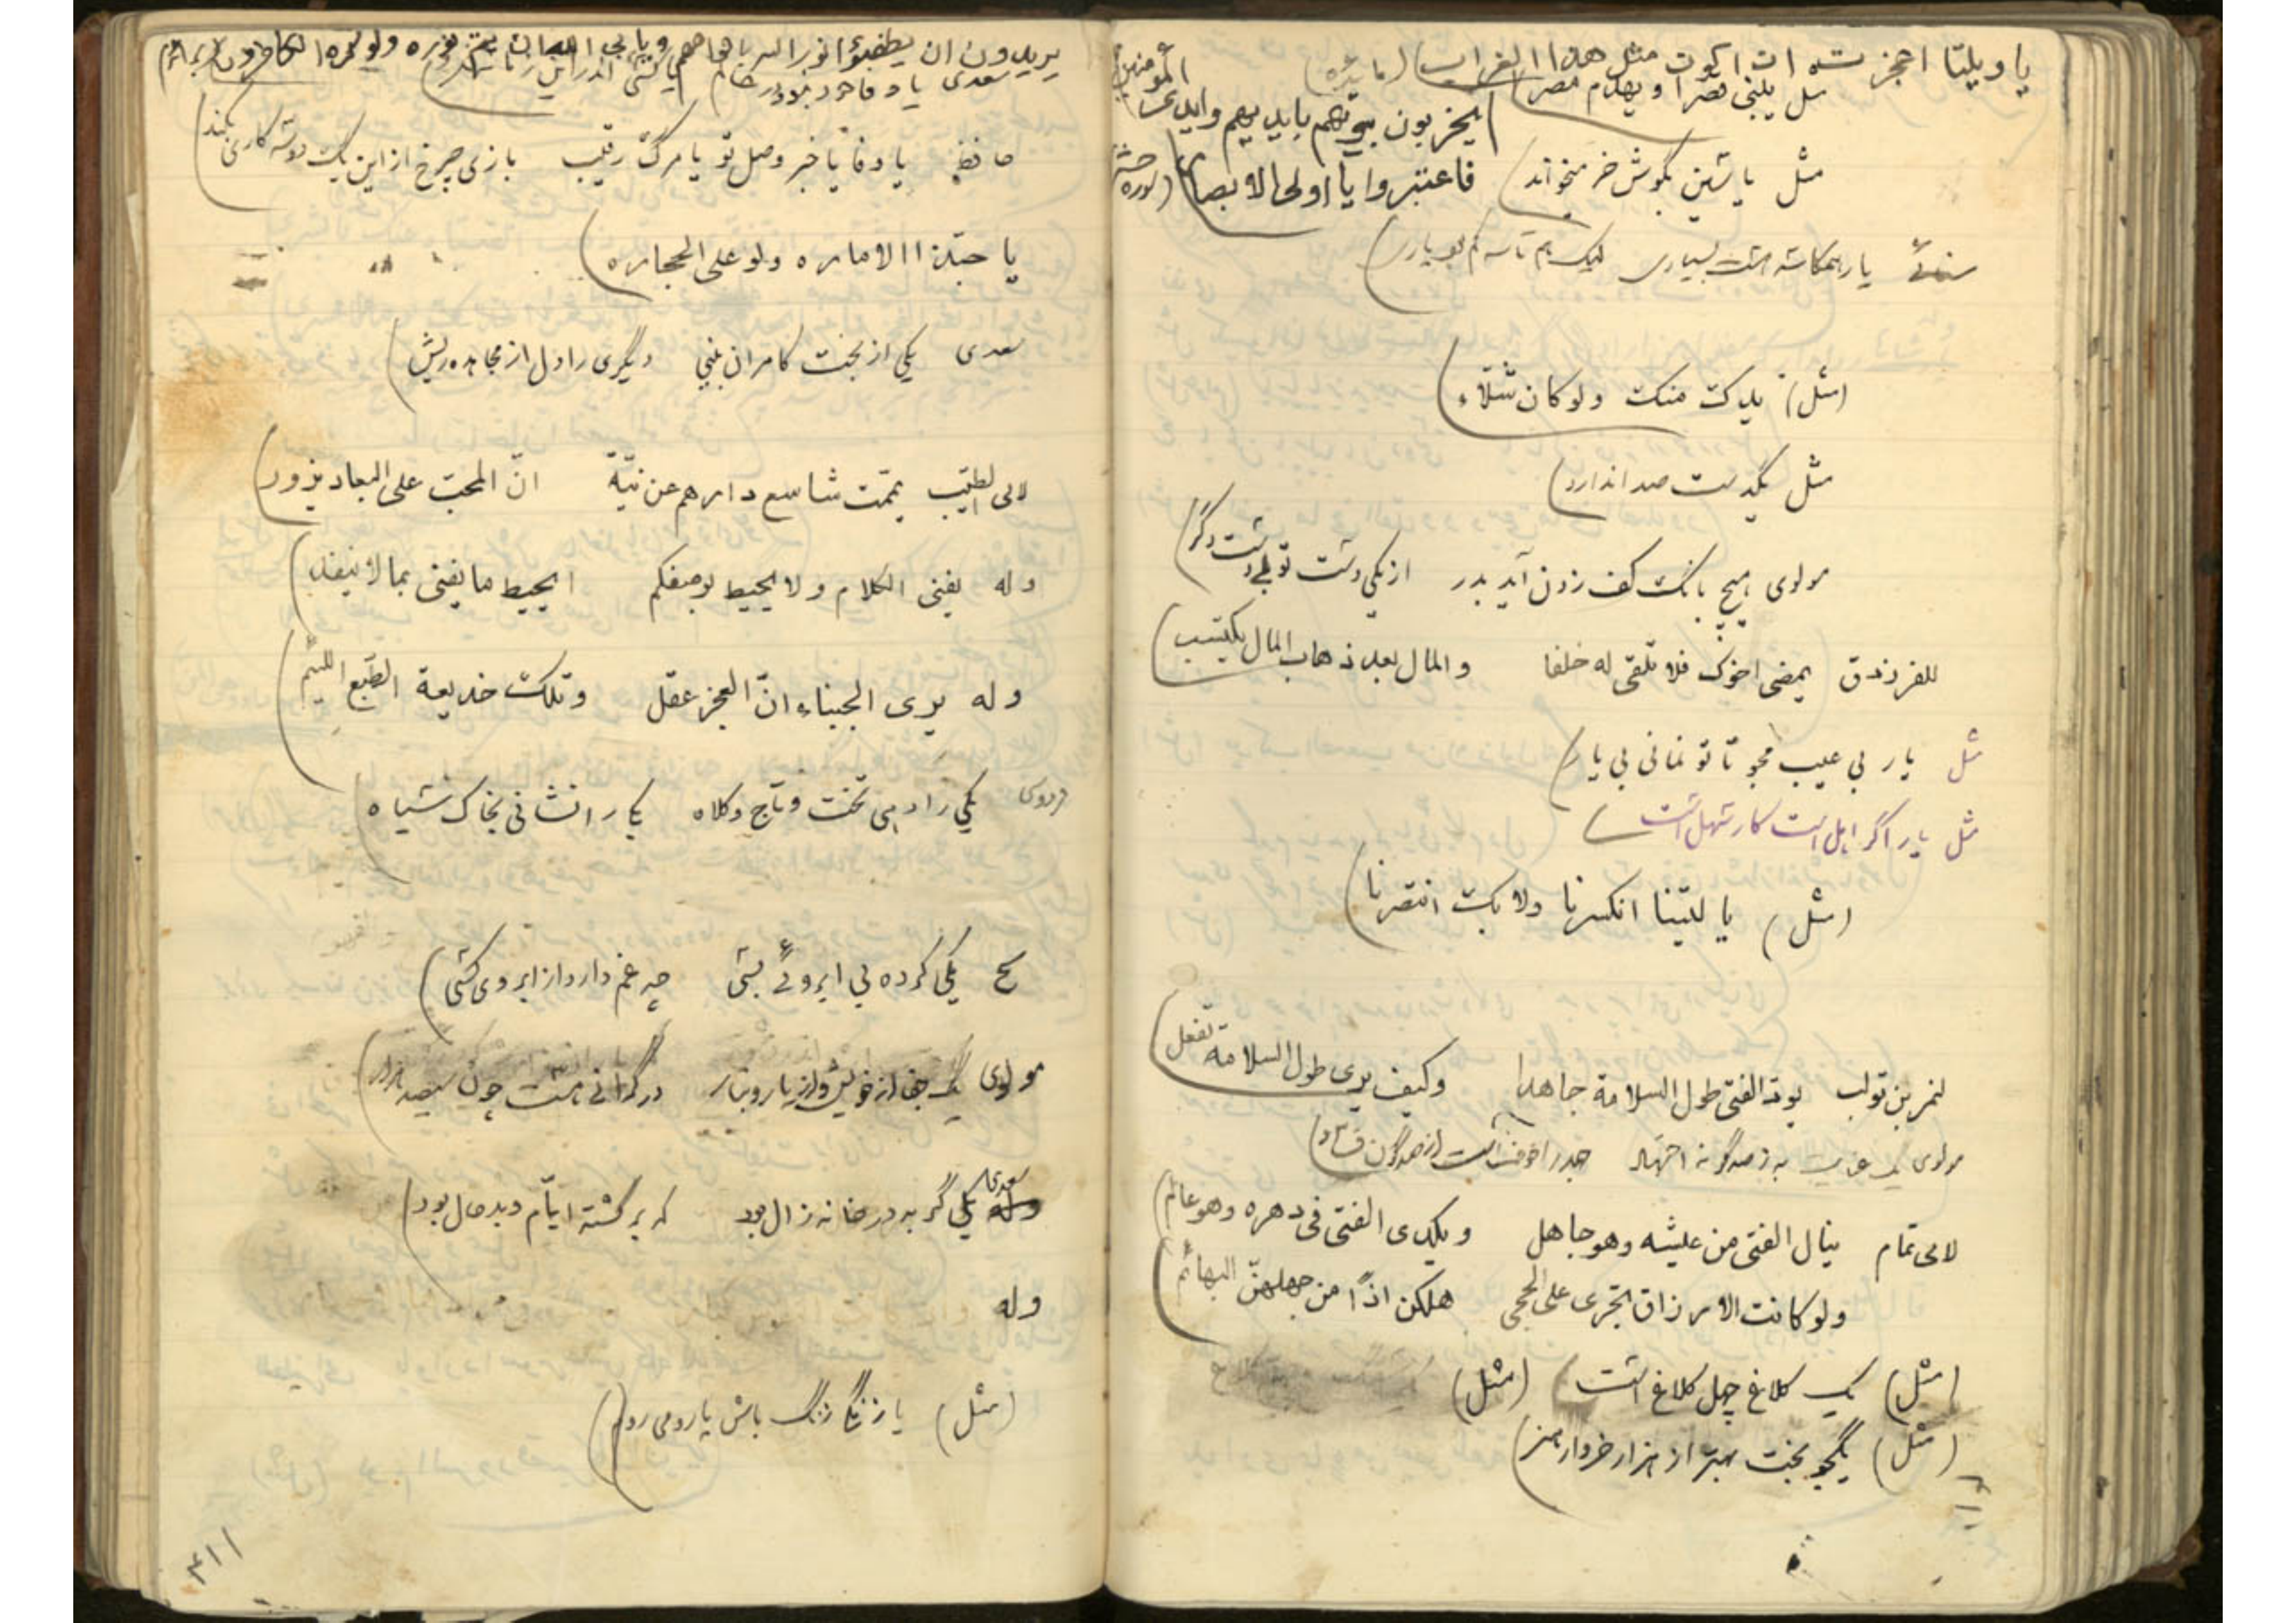 یا ویلتا اعجزت ان اکون مثل هذا الغراب (مایده)
مثل یبنی قصرا و یهدم مصرا
یخربون بیوتهم بایدیهم وایدی المؤمنین
مثل یاسین بگوش خر میخواند) فاعتبروا یا اولی الابصار (سوره حشر
سنائی یار همکاسه هست بسیاری لیک هم کاسه کم بود یاری)
(مثل) یدک منک ولو کان شلّاء)
مثل یکدست صدا ندارد)
مولوی هیچ بانگ کف زدن آید بدر از یکی دست تو بی دست دگر)
للفرزدق یمضی اخوک فلا تلقی له خلفا والمال بعد ذهاب المال یکتسب)
مثل یار بی عیب مجو تا تو نمانی بی یار)
مثل یار اگر اهل است کار سهل است)
(مثل) یا لیتنا انکسرنا ولا بک انتصرنا)
لنمر بن تولب یود الفتی طول السلامة جاهدا وکیف یری طول السلامة تفعل)
مولوی یک به ز صدگونه
لابی تمام ینال الفتی من عیشه وهو جاهل ویکدی الفتی فی دهره وهو عالم)
ولو کانت الارزاق تجری علی الحجی هلکن اذاً من جهلهنّ البهائم)
(مثل) یک کلاغ چهل کلاغ است) (مثل)
(مثل) یکجو بخت بهتر از هزار خروار هنر)
یریدون ان یطفئوا نور الله بافواههم ویابی الله الا ان یتم نوره ولو کره الکافرون
سعدی یا وفا خود نبود در عالم یا کسی اندر این زمانه نکرد)
حافظ یا وفا یا خبر وصل تو یا مرگ رقیب بازی چرخ از این یک دو سه کاری بکند)
یا حبّذا الاماره ولو علی الحجاره)
سعدی یکی از بخت کامران بینی دیگری را دل از مجاهده ریش)
لابی الطیّب یمّمت شاسع دارهم عن نیّة انّ المحبّ علی البعاد یزور)
وله یفنی الکلام ولا یحیط بوصفکم ایحیط ما یفنی بما لا ینفد)
وله یری الجبناء انّ العجز عقل وتلک خدیعة الطّبع اللئیم)
فردوسی یکی را دهی تخت و تاج و کلاه یکی را نشانی بخاک سیاه)
یکی کرده بی آبروئی بسی چه غم دارد از آبروی کسی)
مولوی یک جفا از خویش و از یار و تبار در گرانی هست چون سیصد هزار)
سعدی یکی گربه در خانه زال بود که برگشته ایّام و بدحال بود)
وله
(مثل) یا زنگی زنگ باش یا رومی روم)
۴۱۱